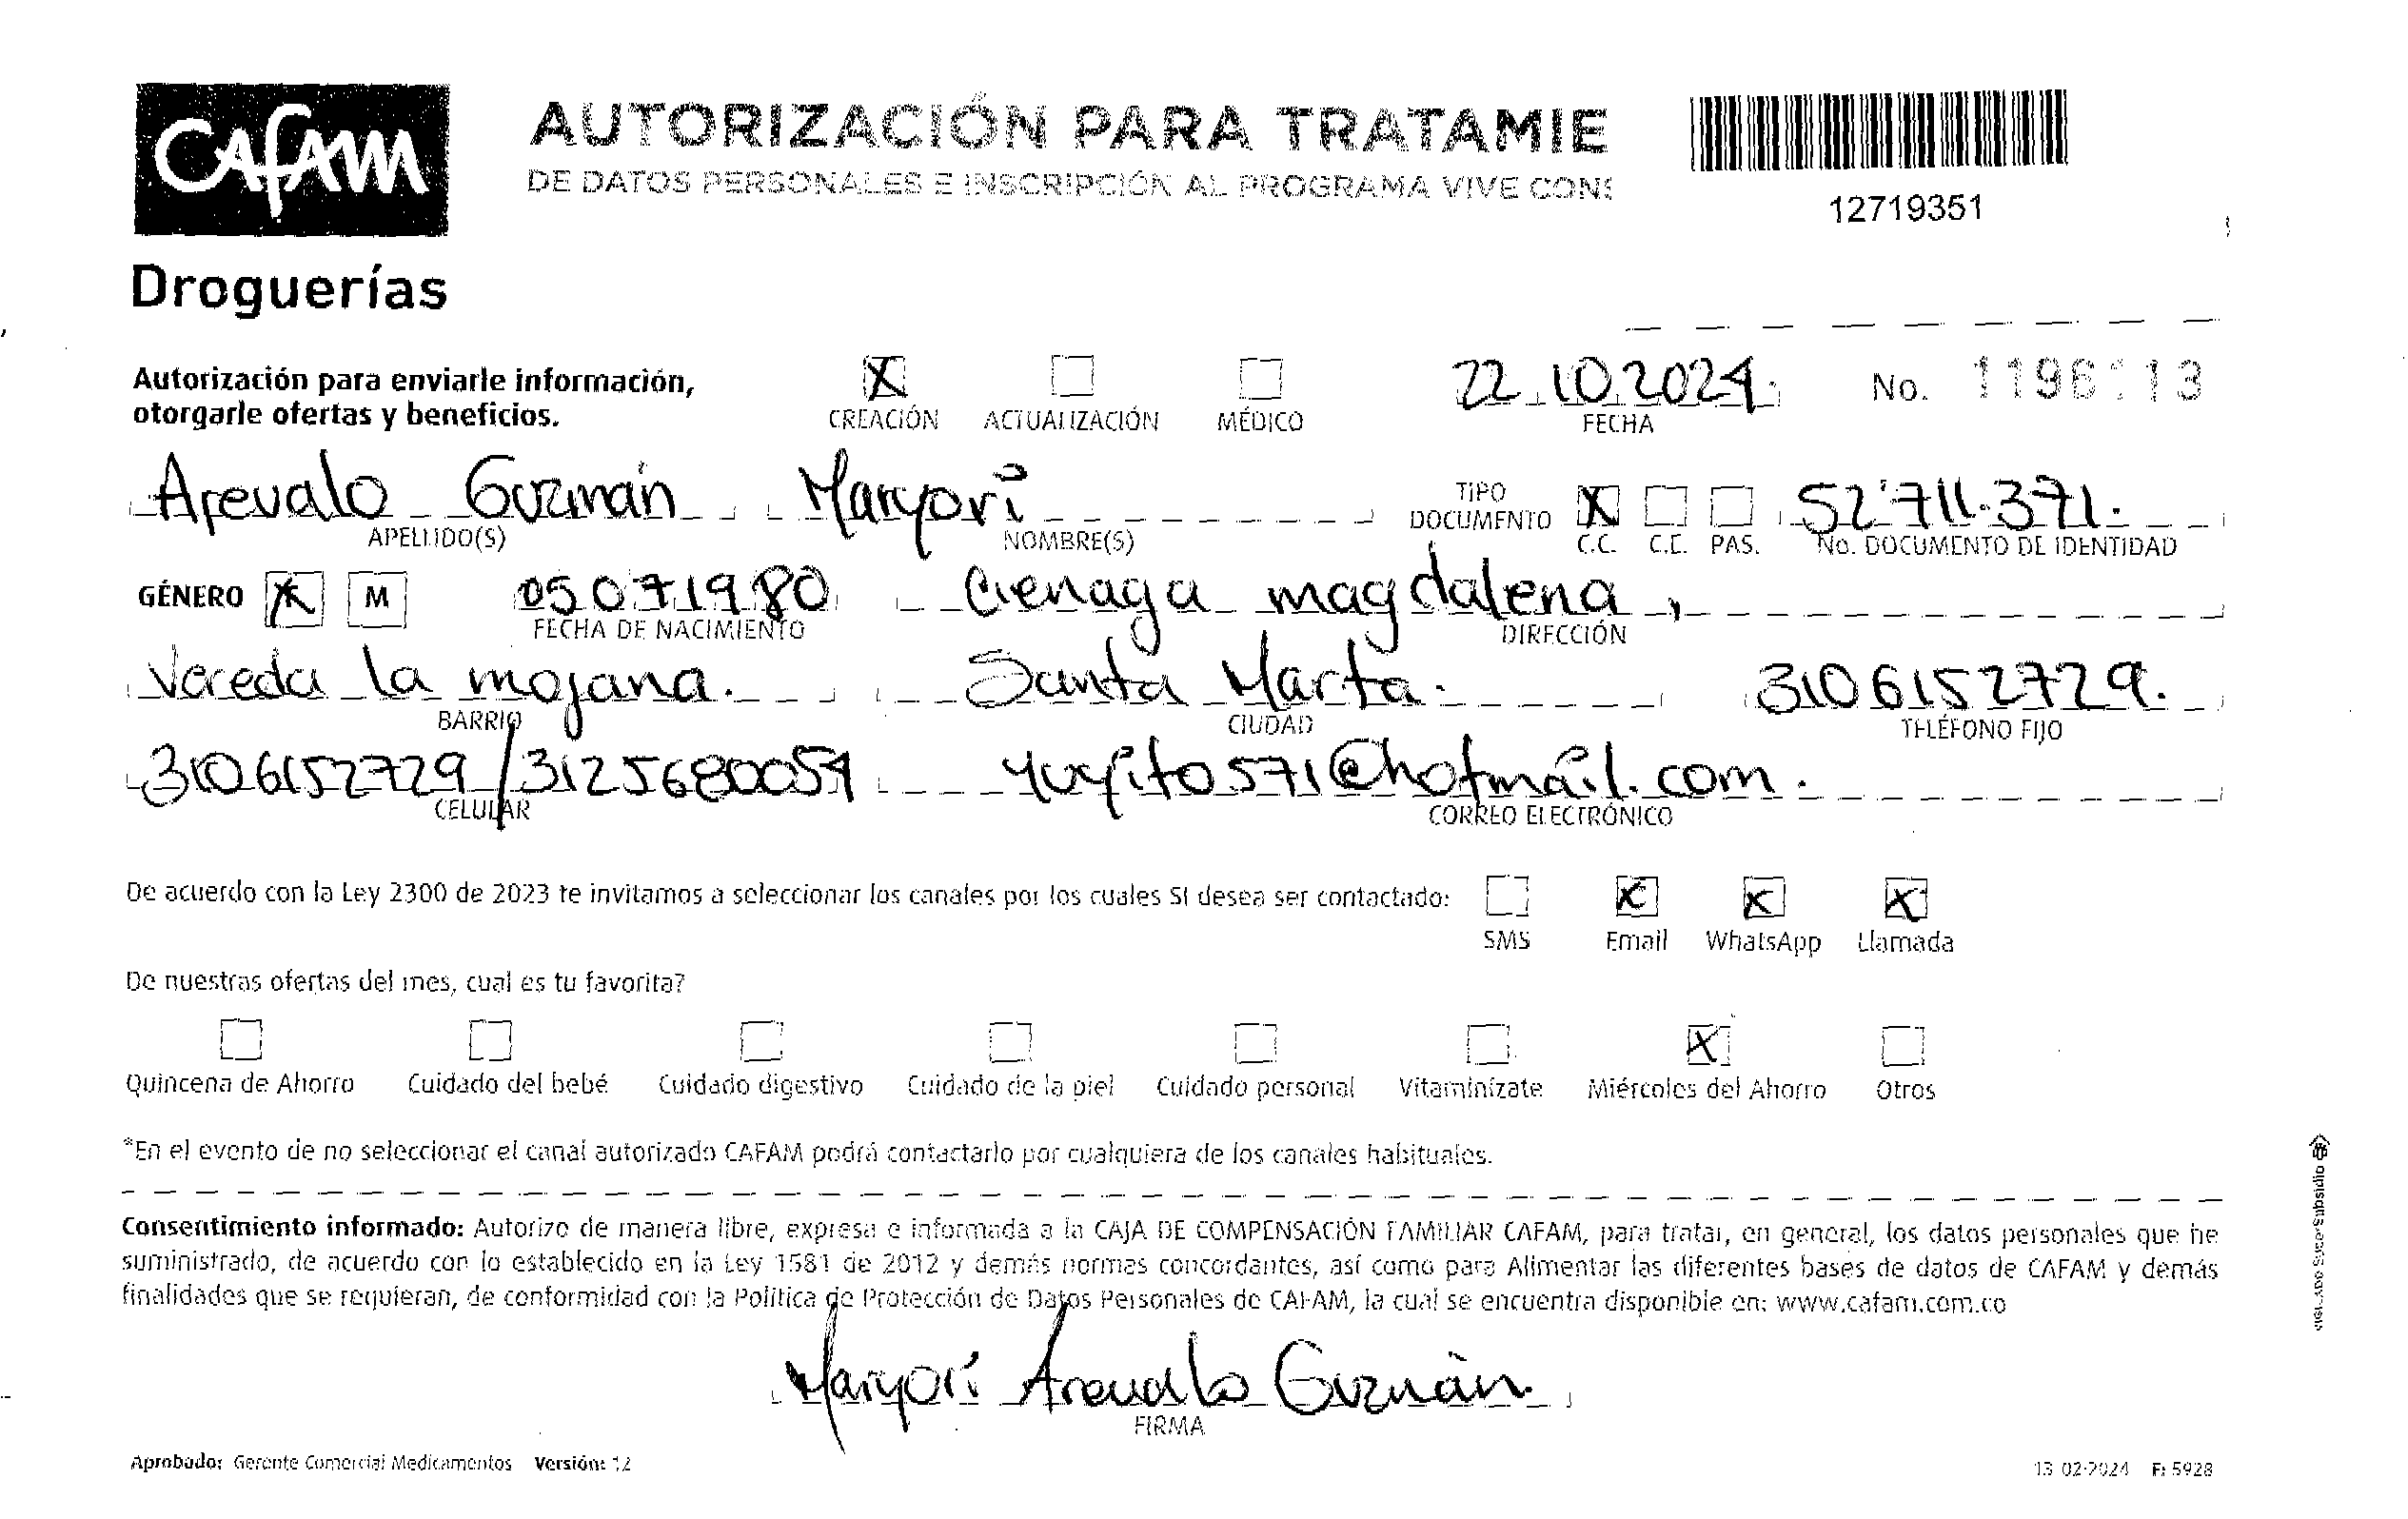 CAFAM
Droguerías
AUTORIZACIÓN PARA TRATAMIE
DE DATOS PERSONALES E INSCRIPCIÓN AL PROGRAMA VIVE CONS
12719351
Autorización para enviarle información,
otorgarle ofertas y beneficios.
X CREACIÓN ACTUALIZACIÓN MÉDICO
22.10.2024 FECHA
No.
Arevalo Guzmán Maryori
APELLIDO(S) NOMBRE(S)
TIPO DOCUMENTO X C.C. C.E. PAS.
52'711.371.
No. DOCUMENTO DE IDENTIDAD
GÉNERO X M
05071980 Cienaga magdalena,
FECHA DE NACIMIENTO DIRECCIÓN
Vereda la mojana. Santa Marta. 3106152729.
BARRIO CIUDAD TELÉFONO FIJO
3106152729/3125680059 @hotmail.com.
CELULAR CORREO ELECTRÓNICO
De acuerdo con la Ley 2300 de 2023 te invitamos a seleccionar los canales por los cuales SI desea ser contactado:
SMS X Email X WhatsApp X Llamada
De nuestras ofertas del mes, cual es tu favorita?
X
Quincena de Ahorro Cuidado del bebé Cuidado digestivo Cuidado de la piel Cuidado personal Vitamínízate Miércoles del Ahorro Otros
*En el evento de no seleccionar el canal autorizado CAFAM podrá contactarlo por cualquiera de los canales habituales.
Consentimiento informado: Autorizo de manera libre, expresa e informada a la CAJA DE COMPENSACIÓN FAMILIAR CAFAM, para tratar, en general, los datos personales que he
suministrado, de acuerdo con lo establecido en la Ley 1581 de 2012 y demás normas concordantes, así como para Alimentar las diferentes bases de datos de CAFAM y demás
finalidades que se requieran, de conformidad con la Política de Protección de Datos Personales de CAFAM, la cual se encuentra disponible en: www.cafam.com.co
Maryori Arevalo Guzmán.
FIRMA
Aprobado: Gerente Comercial Medicamentos Versión: 12
13-02-2024 F: 5928